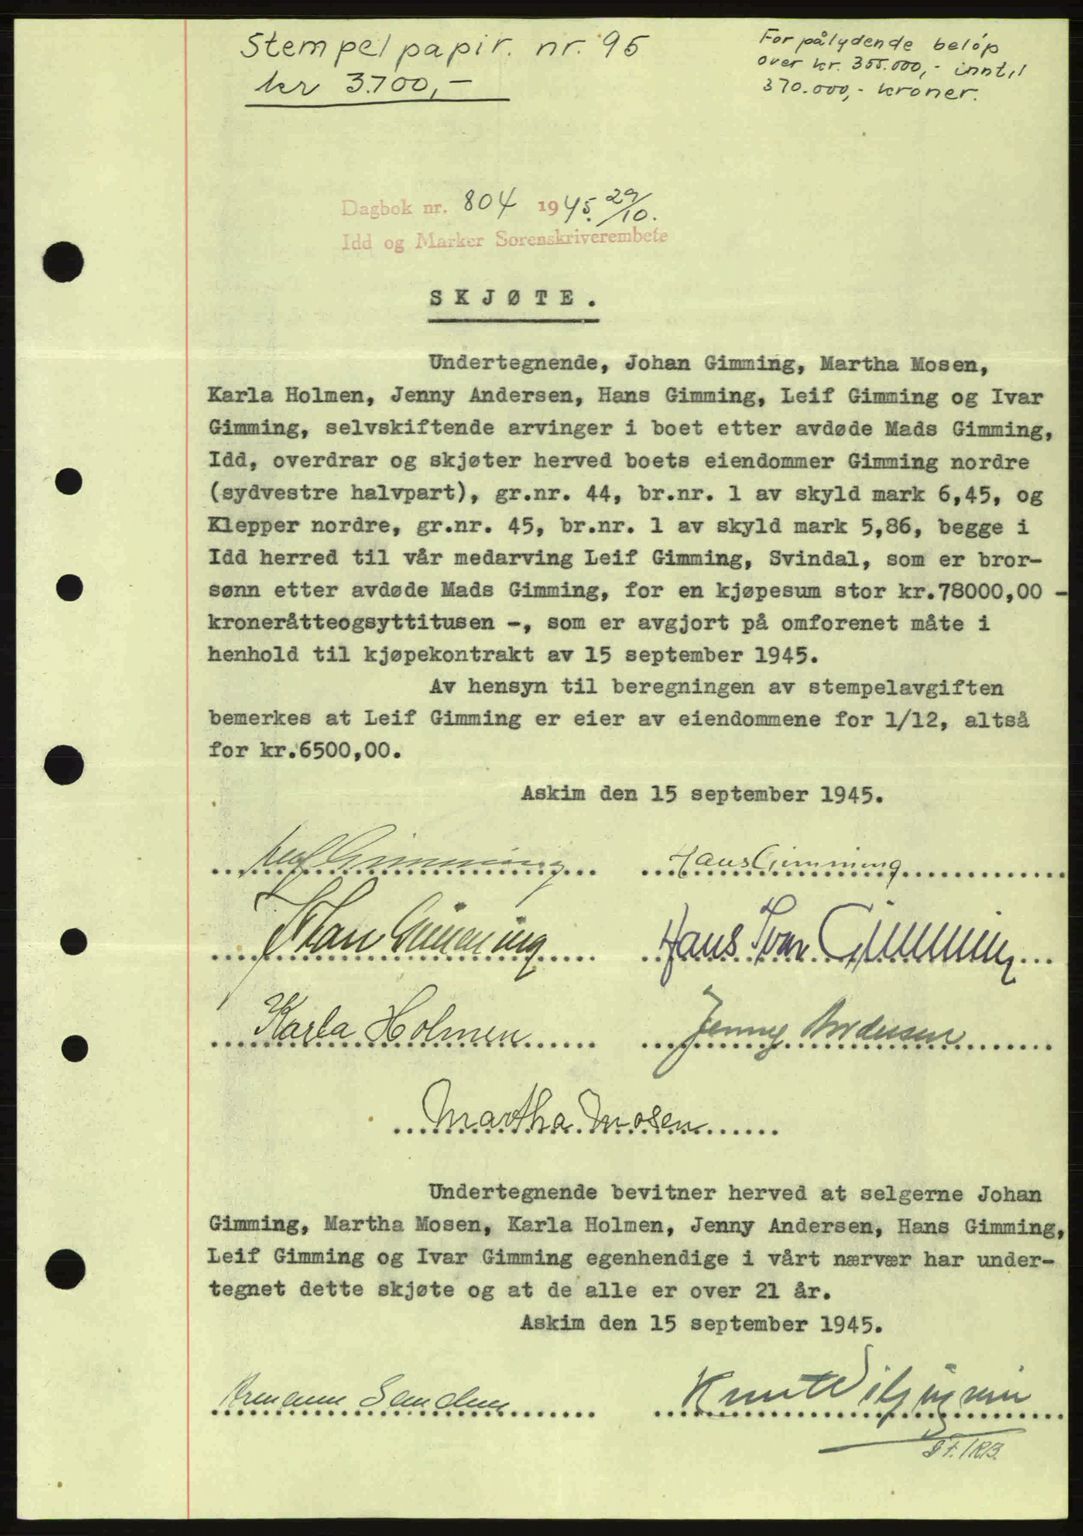 Stempelpapir. nr. 95
kr 3.700,-
For pålydende beløp
over kr. 355.000,- inntil
370.000,- kroner.
Dagbok nr. 804 1945. 29/10.
Idd og Marker Sorenskriverembete
SKJØTE.
Undertegnende, Johan Gimming, Martha Mosen,
Karla Holmen, Jenny Andersen, Hans Gimming, Leif Gimming og Ivar
Gimming, selvskiftende arvinger i boet etter avdøde Mads Gimming,
Idd, overdrar og skjøter herved boets eiendommer Gimming nordre
(sydvestre halvpart), gr.nr. 44, br.nr. 1 av skyld mark 6,45, og
Klepper nordre, gr.nr. 45, br.nr. 1 av skyld mark 5,86, begge i
Idd herred til vår medarving Leif Gimming, Svindal, som er bror-
sønn etter avdøde Mads Gimming, for en kjøpesum stor kr.78000,00 -
kroneråtteogsyttitusen -, som er avgjort på omforenet måte i
henhold til kjøpekontrakt av 15 september 1945.
Av hensyn til beregningen av stempelavgiften
bemerkes at Leif Gimming er eier av eiendommene for 1/12, altså
for kr.6500,00.
Askim den 15 september 1945.
Leif Gimming
Hans Gimming
Johan Gimming
Hans Ivar Gimming
Karla Holmen
Jenny Andersen
Martha Mosen
Undertegnende bevitner herved at selgerne Johan
Gimming, Martha Mosen, Karla Holmen, Jenny Andersen, Hans Gimming,
Leif Gimming og Ivar Gimming egenhendige i vårt nærvær har under-
tegnet dette skjøte og at de alle er over 21 år.
Askim den 15 september 1945.
Knut